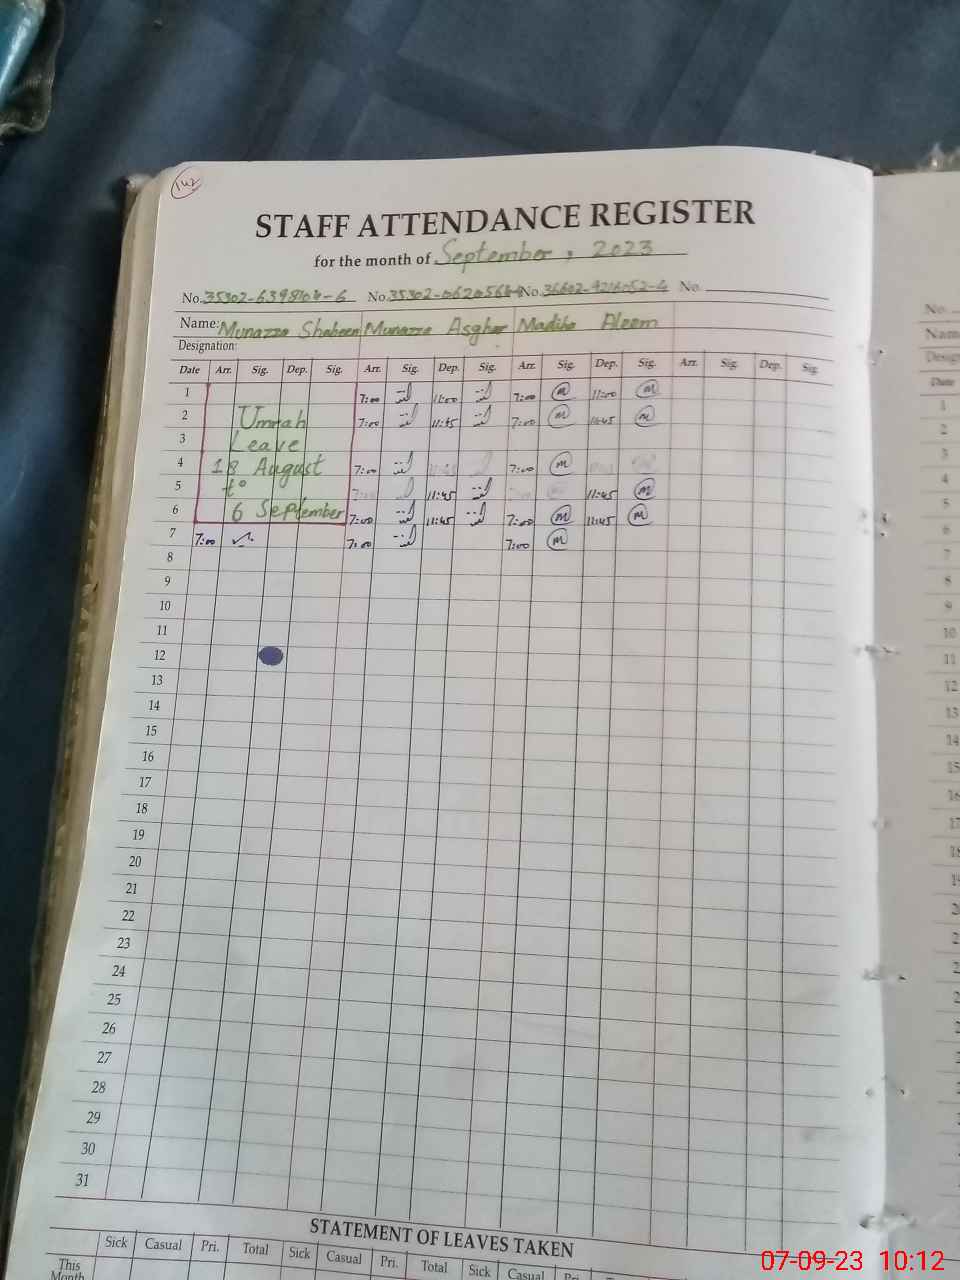 142
STAFF ATTENDANCE REGISTER
for the month of September, 2023
No. 35302-6398104-6 No. 35302-0620564- No. 36602-9216052-4 No.
Name: Munazza Shaheen Munazza Asghar Madiha Aleem
Designation:
Date Arr. Sig. Dep. Sig. Arr. Sig. Dep. Sig. Arr. Sig. Dep. Sig. Arr. Sig. Dep. Sig.
1 7:00 11:00 7:00 m 11:00 m
2 Umrah 7:00 11:45 7:00 m 11:45 m
3 Leave
4 18 August 7:00 7:00 m
5 to 11:45 11:45 m
6 6 September 7:00 11:45 7:00 m 11:45 m
7 7:00 7:00 7:00 m
8
9
10
11
12
13
14
15
16
17
18
19
20
21
22
23
24
25
26
27
28
29
30
31
STATEMENT OF LEAVES TAKEN
Sick Casual Pri. Total Sick Casual Pri. Total Sick Casual
This
Month
No.
Name
Date
1
2
3
4
5
6
7
8
9
10
11
12
13
14
15
16
17
18
07-09-23 10:12